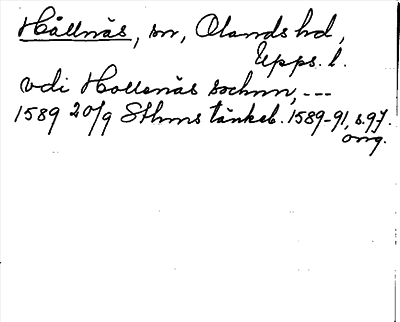 Hållnäs, sn, Olands hd,
Upps. l.
vdi Hollenäs sochnn, ---
1589 20/9 Sthms tänkeb. 1589-91, s. 97.
orig.